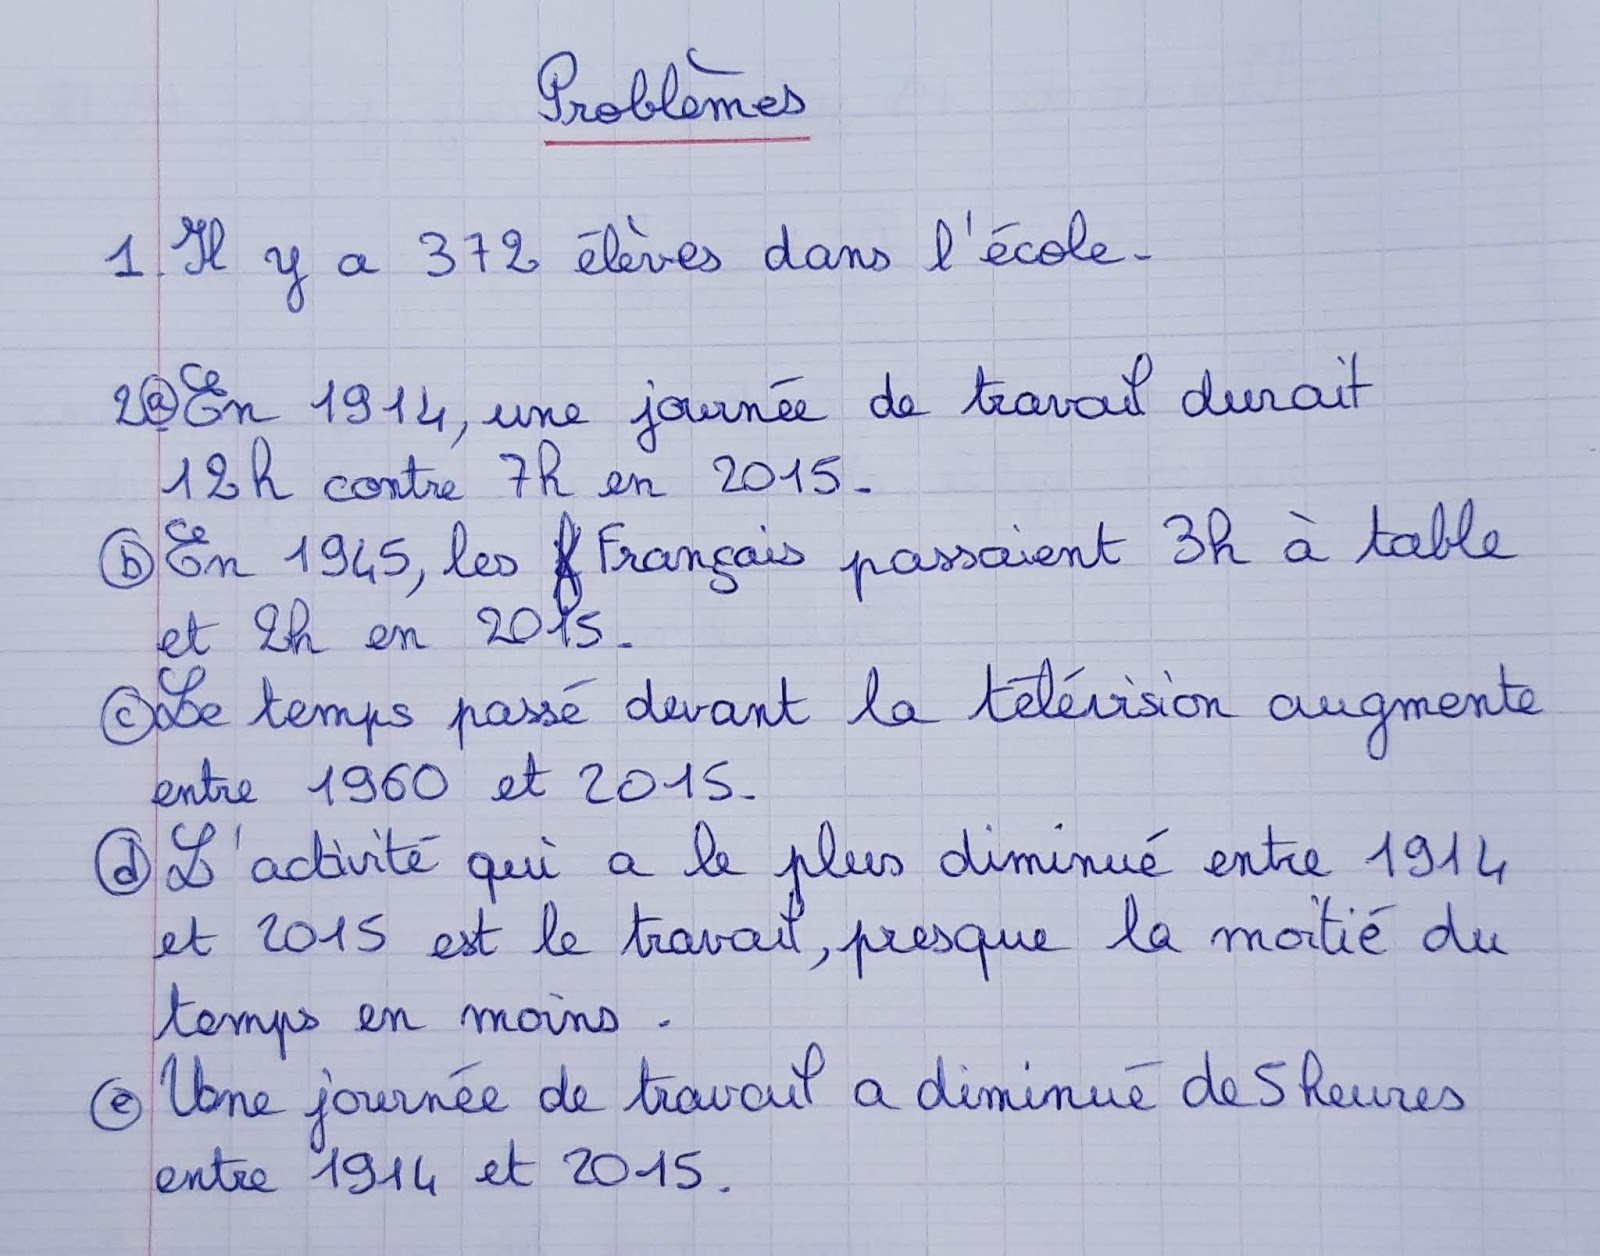 Problèmes
1. Il y a 372 élèves dans l'école.
2 a En 1914, une journée de travail durait
12h contre 7h en 2015.
b En 1945, les Français passaient 3h à table
et 2h en 2015.
c Le temps passé devant la télévision augmente
entre 1960 et 2015.
d L'activité qui a le plus diminué entre 1914
et 2015 est le travail, presque la moitié du
temps en moins.
e Une journée de travail a diminué de 5 heures
entre 1914 et 2015.